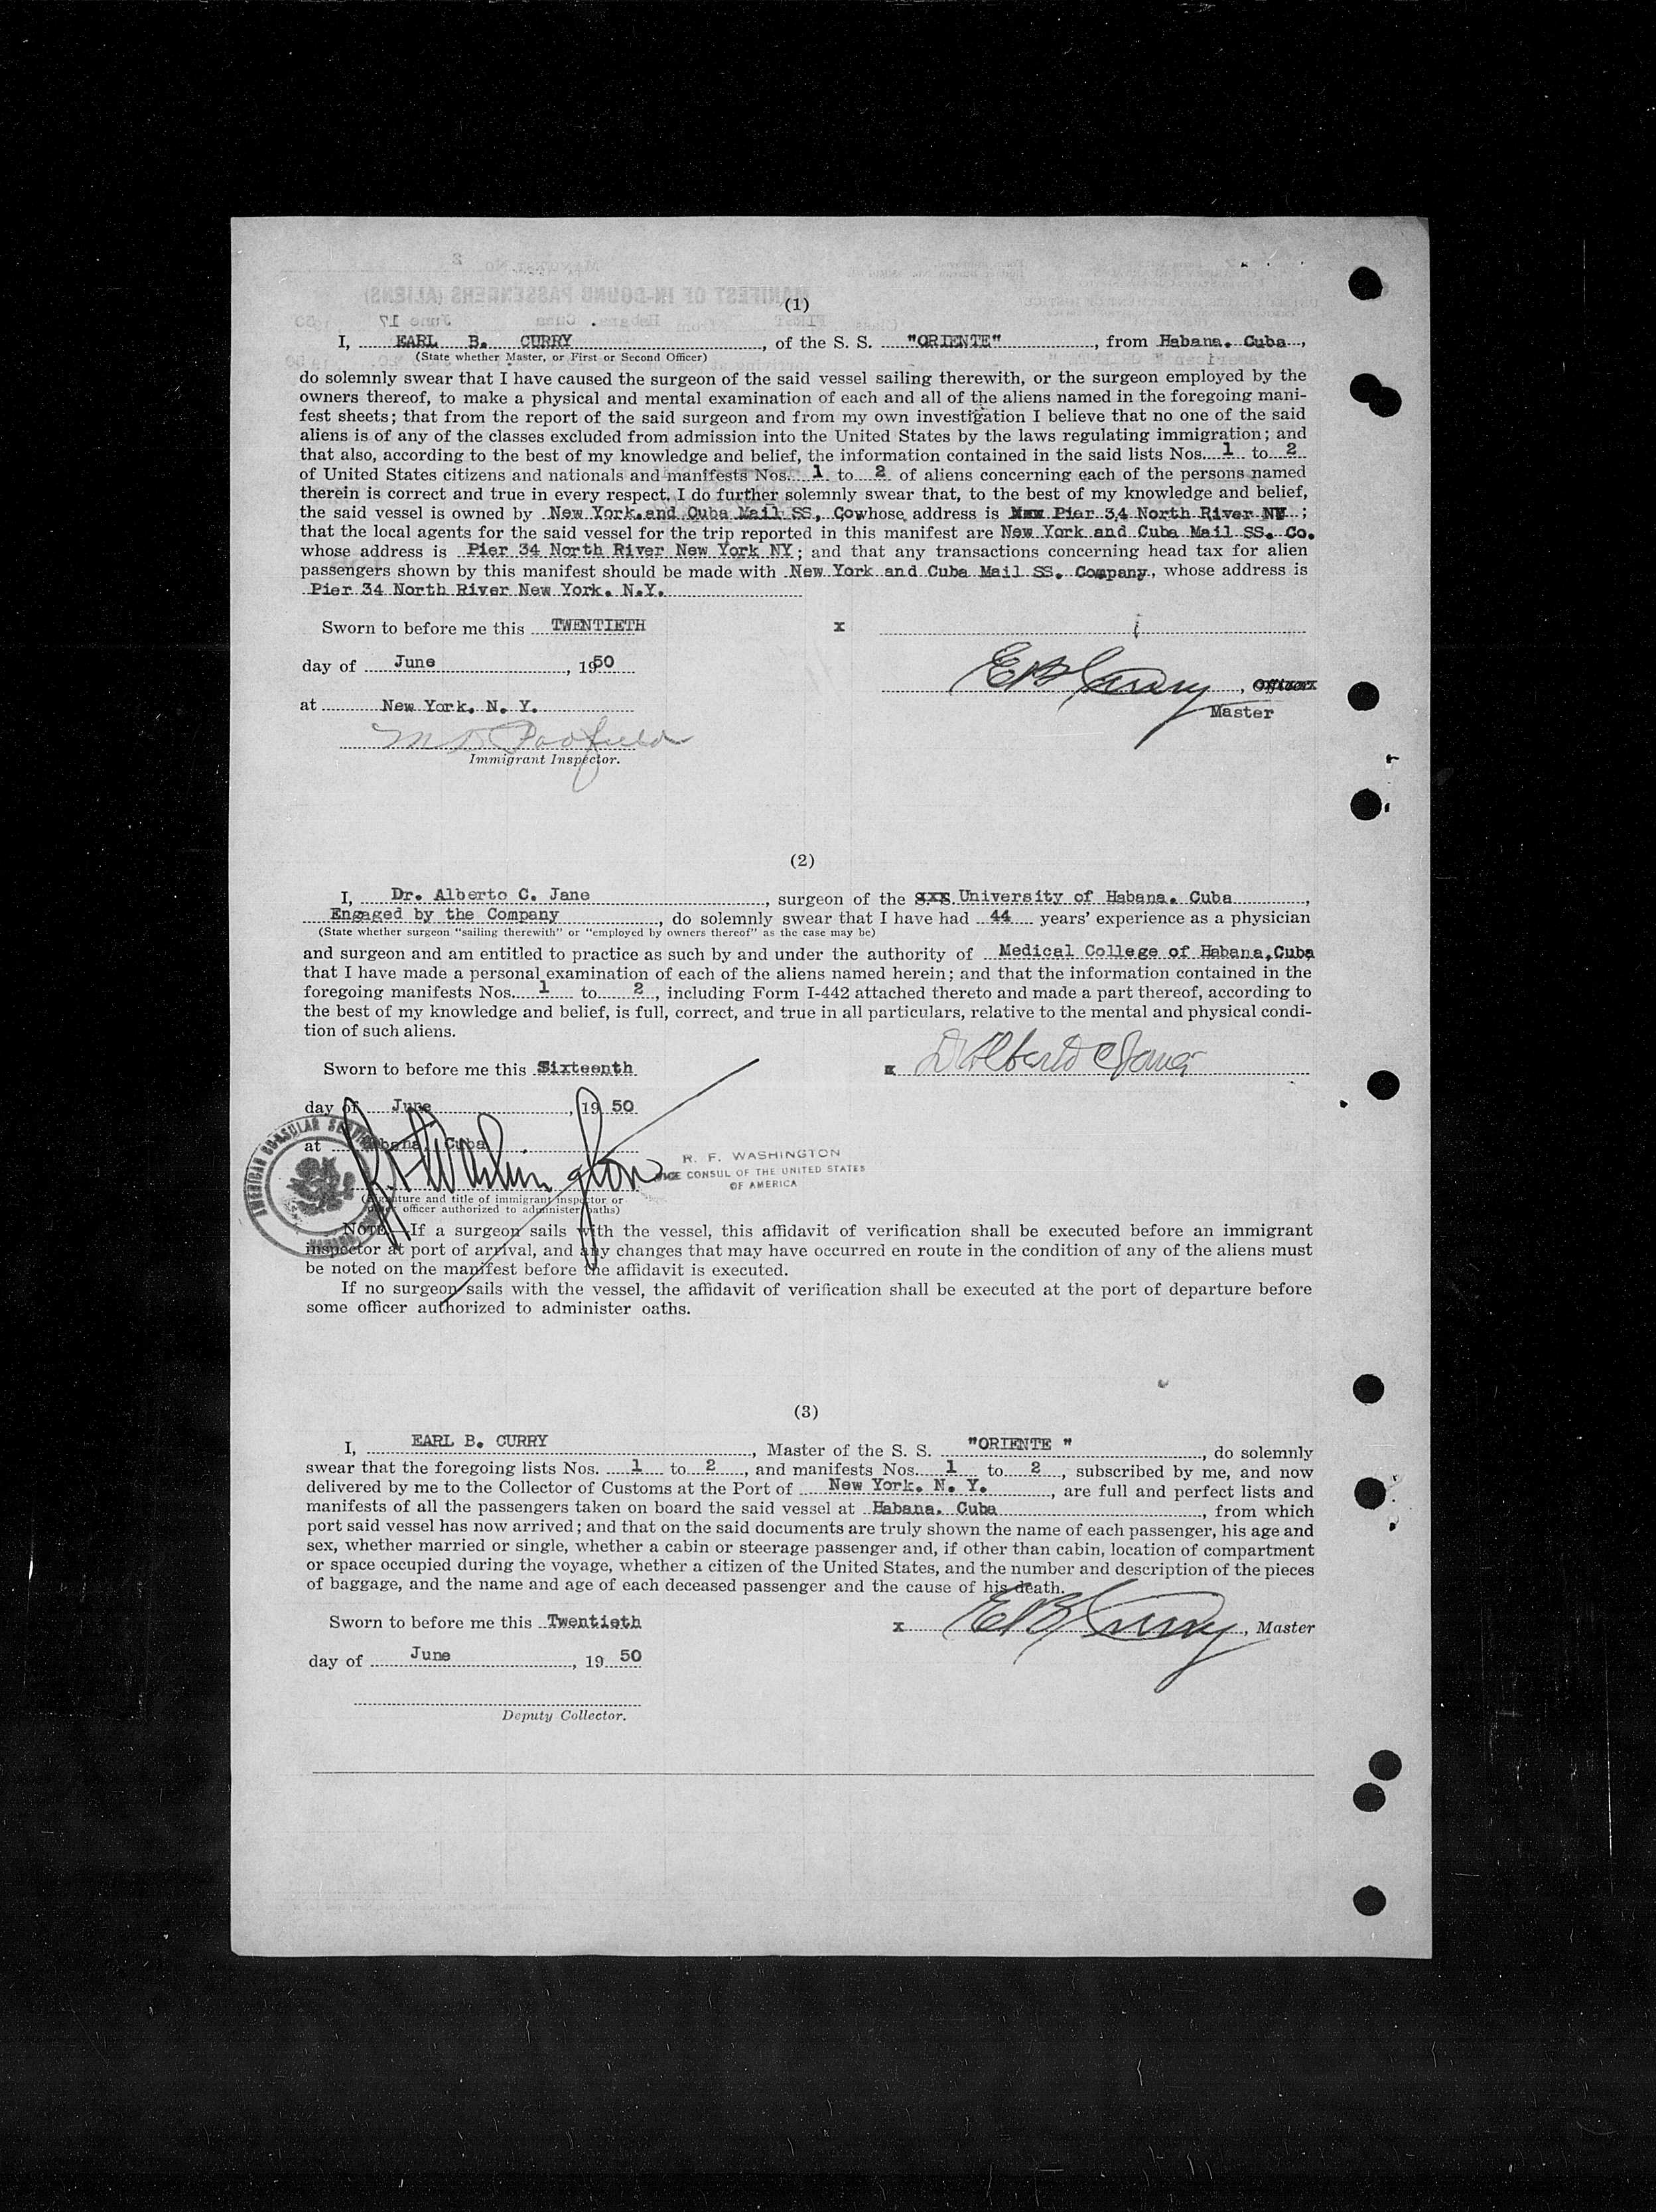 (1)
I, EARL B. CURRY, of the S. S. "ORIENTE", from Habana. Cuba,
(State whether Master, or First or Second Officer)
do solemnly swear that I have caused the surgeon of the said vessel sailing therewith, or the surgeon employed by the
owners thereof, to make a physical and mental examination of each and all of the aliens named in the foregoing mani-
fest sheets; that from the report of the said surgeon and from my own investigation I believe that no one of the said
aliens is of any of the classes excluded from admission into the United States by the laws regulating immigration; and
that also, according to the best of my knowledge and belief, the information contained in the said lists Nos. 1 to 2
of United States citizens and nationals and manifests Nos. 1 to 2 of aliens concerning each of the persons named
therein is correct and true in every respect. I do further solemnly swear that, to the best of my knowledge and belief,
the said vessel is owned by New York.and Cuba Mail SS, Co whose address is Pier 34 North River NY;
that the local agents for the said vessel for the trip reported in this manifest are New York and Cuba Mail SS. Co.
whose address is Pier 34 North River New York NY; and that any transactions concerning head tax for alien
passengers shown by this manifest should be made with New York and Cuba Mail SS. Company, whose address is
Pier 34 North River New York. N.Y.
Sworn to before me this TWENTIETH x
day of June, 1950
E B Curry, Officer
at New York. N. Y. Master
Immigrant Inspector.
(2)
I, Dr. Alberto C. Jane, surgeon of the S.S. University of Habana. Cuba,
Engaged by the Company, do solemnly swear that I have had 44 years' experience as a physician
(State whether surgeon "sailing therewith" or "employed by owners thereof" as the case may be)
and surgeon and am entitled to practice as such by and under the authority of Medical College of Habana,Cuba
that I have made a personal examination of each of the aliens named herein; and that the information contained in the
foregoing manifests Nos. 1 to 2, including Form I-442 attached thereto and made a part thereof, according to
the best of my knowledge and belief, is full, correct, and true in all particulars, relative to the mental and physical condi-
tion of such aliens.
Sworn to before me this Sixteenth x Dr Alberto C Janer
day of June, 19 50
at Habana, Cuba
AMERICAN CONSULAR SERVICE
R. F. Washington
R. F. WASHINGTON
VICE CONSUL OF THE UNITED STATES
OF AMERICA
(Signature and title of immigrant inspector or
other officer authorized to administer oaths)
NOTE.—If a surgeon sails with the vessel, this affidavit of verification shall be executed before an immigrant
inspector at port of arrival, and any changes that may have occurred en route in the condition of any of the aliens must
be noted on the manifest before the affidavit is executed.
If no surgeon sails with the vessel, the affidavit of verification shall be executed at the port of departure before
some officer authorized to administer oaths.
(3)
I, EARL B. CURRY, Master of the S. S. "ORIENTE ", do solemnly
swear that the foregoing lists Nos. 1 to 2, and manifests Nos. 1 to 2, subscribed by me, and now
delivered by me to the Collector of Customs at the Port of New York. N. Y., are full and perfect lists and
manifests of all the passengers taken on board the said vessel at Habana. Cuba, from which
port said vessel has now arrived; and that on the said documents are truly shown the name of each passenger, his age and
sex, whether married or single, whether a cabin or steerage passenger and, if other than cabin, location of compartment
or space occupied during the voyage, whether a citizen of the United States, and the number and description of the pieces
of baggage, and the name and age of each deceased passenger and the cause of his death.
Sworn to before me this Twentieth x E B Curry, Master
day of June, 19 50
Deputy Collector.